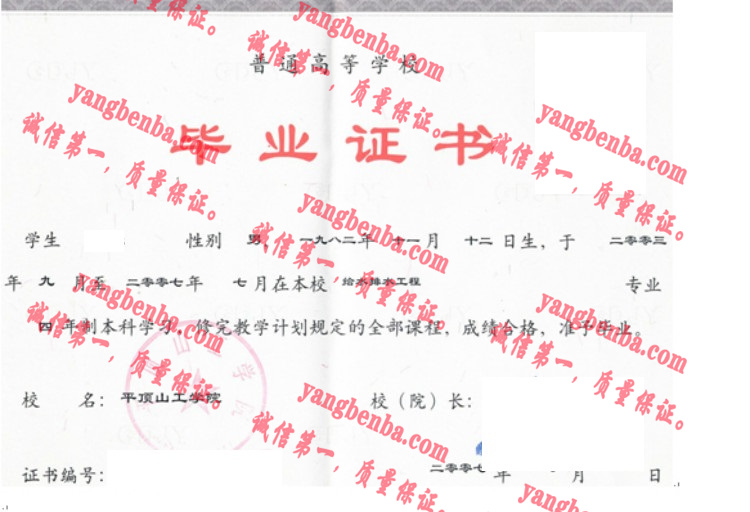 质量保证。
yangbenba.com
诚信第一，质量保证。
普通高等学校
yangbenba.com
诚信第一，质量保证。
yangbenba.com
诚信第一，质量保证。
毕业证书
学生 性别 男， 一九八二年 十一月 十二日生，于 二零零三
yangbenba.com
诚信第一，质量保证。
年 九 月至 二零零七年 七月在本校 给水排水工程 专业
yangbenba.com
诚信第一，质量保证。
yangbenba.com
诚信第一，质量保证。
四年制本科学习，修完教学计划规定的全部课程，成绩合格，准予毕业。
校 名：平顶山工学院 校（院）长：
yangbenba.com
诚信第一，质量保证。
证书编号： 二零零七 年 月 日
yangb